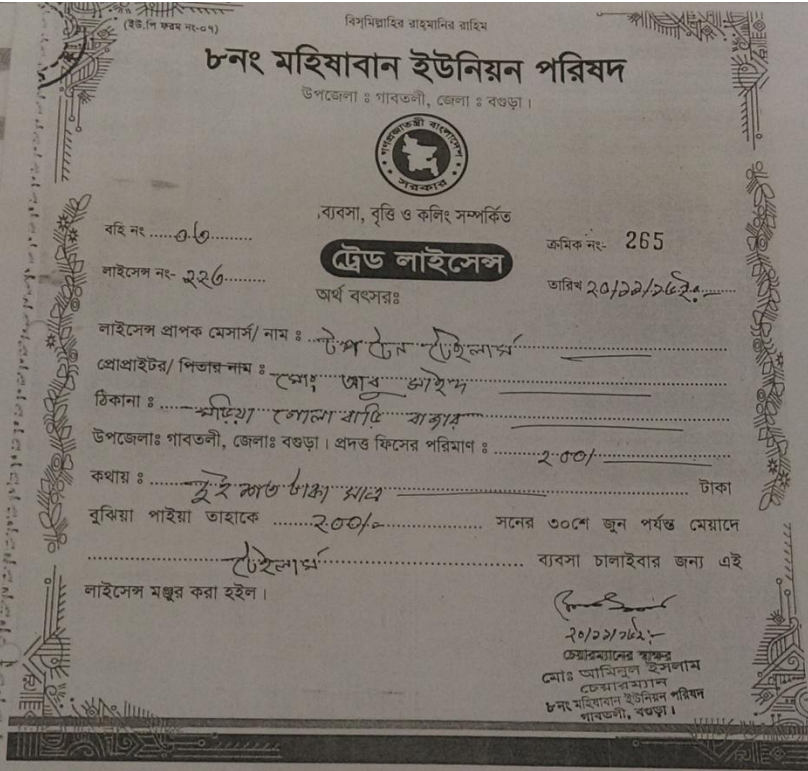 (ইউ,পি ফরম নং-০৭)
বিসমিল্লাহির রাহমানির রাহিম
৮নং মহিষাবান ইউনিয়ন পরিষদ
উপজেলা ঃ গাবতলী, জেলা ঃ বগুড়া।
গণপ্রজাতন্ত্রী বাংলাদেশ
সরকার
ব্যবসা, বৃত্তি ও কলিং সম্পর্কিত
বহি নং
ক্রমিক নং- 265
ট্রেড লাইসেন্স
লাইসেন্স নং- ২২৩
তারিখ
অর্থ বৎসরঃ
লাইসেন্স প্রাপক মেসার্স/ নাম ঃ টপ টেন টেইলার্স
প্রোপ্রাইটর/ পিতার নাম ঃ মোঃ আবু সাইদ
ঠিকানা ঃ মড়িয়া গোলা বাড়ি বাজার
উপজেলাঃ গাবতলী, জেলাঃ বগুড়া। প্রদত্ত ফিসের পরিমাণ ঃ ২০০/
কথায় ঃ দুই শত টাকা মাত্র টাকা
বুঝিয়া পাইয়া তাহাকে ২০০/= সনের ৩০শে জুন পর্যন্ত মেয়াদে
টেইলার্স ব্যবসা চালাইবার জন্য এই
লাইসেন্স মঞ্জুর করা হইল।
চেয়ারম্যানের স্বাক্ষর
মোঃ আমিনুল ইসলাম
চেয়ারম্যান
৮নং মহিষাবান ইউনিয়ন পরিষদ
গাবতলী, বগুড়া।